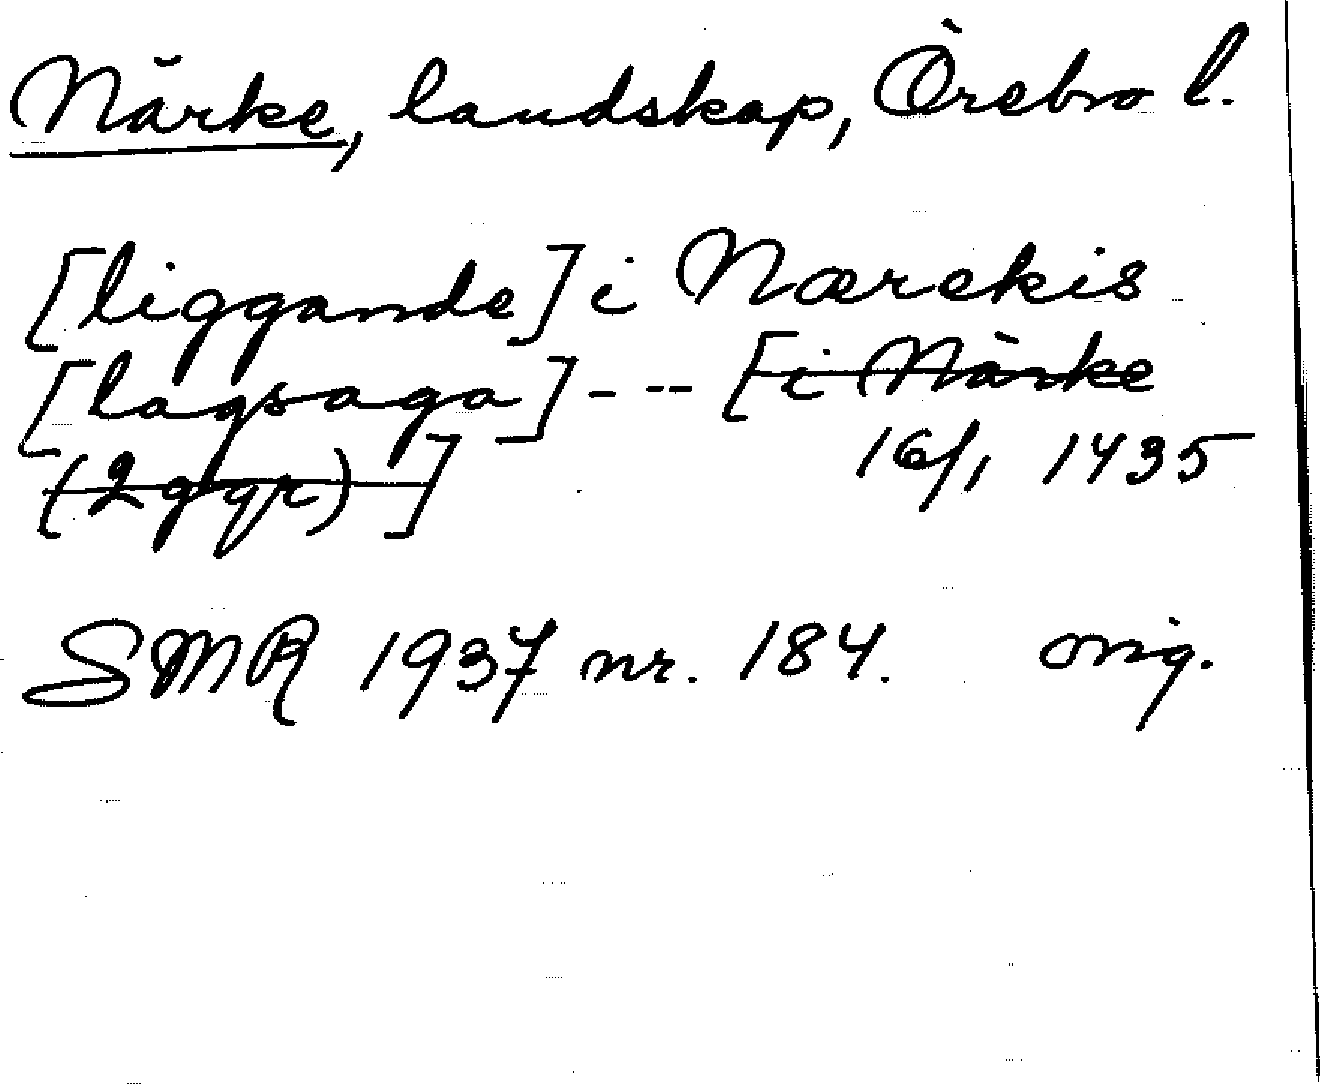 Närke, landskap, Örebro l.
[liggande] i Nærekis
[lagsaga] - -- [i Närke
(2 ggr)] 16/1 1435
SMR 1937 nr. 184. orig.